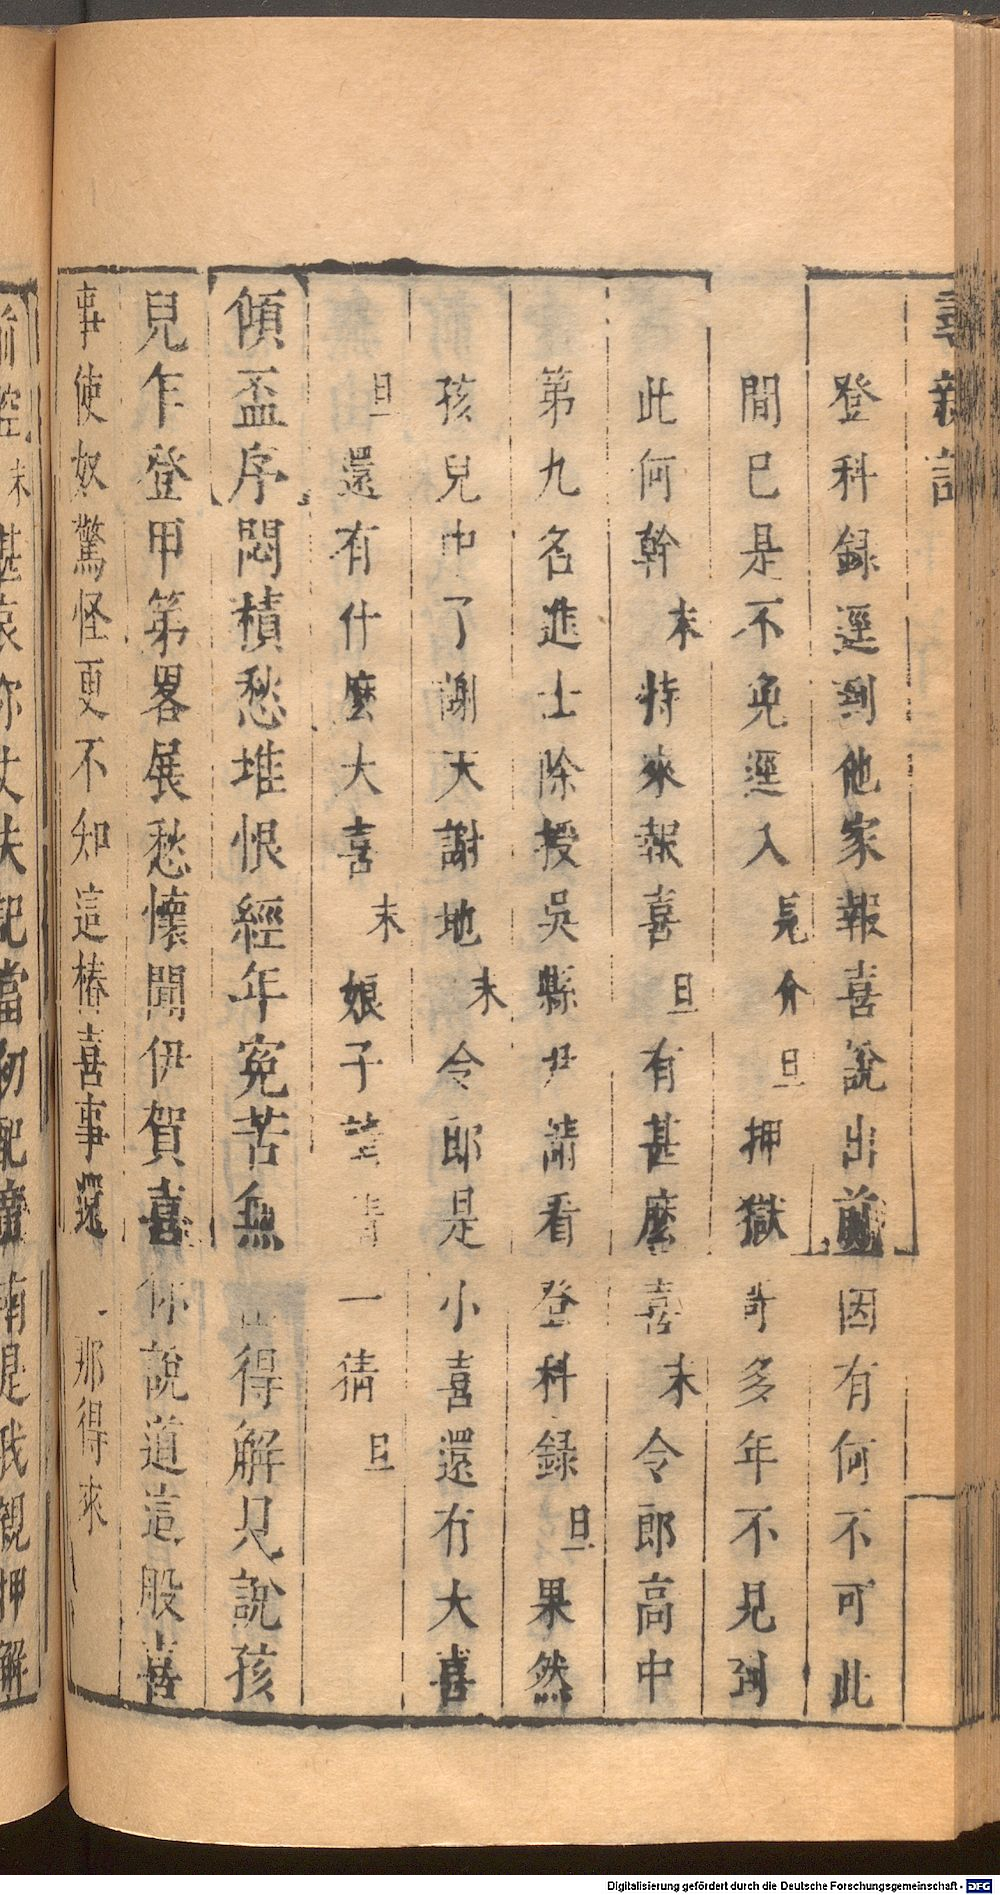 尋親記
登科録逕到他家報喜說出前因有何不可此
間已是不免逕入見介旦押獄哥多年不見到
此何幹末特來報喜旦有甚麽喜末令郎高中
第九名進士除授吳縣尹請看登科録旦果然
孩兒中了謝天謝地末令郎是小喜還有大喜
旦還有什麽大喜末娘子 一猜旦
傾盃序悶積愁堆恨經年寃苦無 得解見說孩
兒乍登甲第畧展愁懷聞伊賀喜你說道這般喜
事使奴驚怪更不知這樁喜事還 那得來
末 你丈夫記當初配 南是我親押解
Digitalisierung gefördert durch die Deutsche Forschungsgemeinschaft - DFG